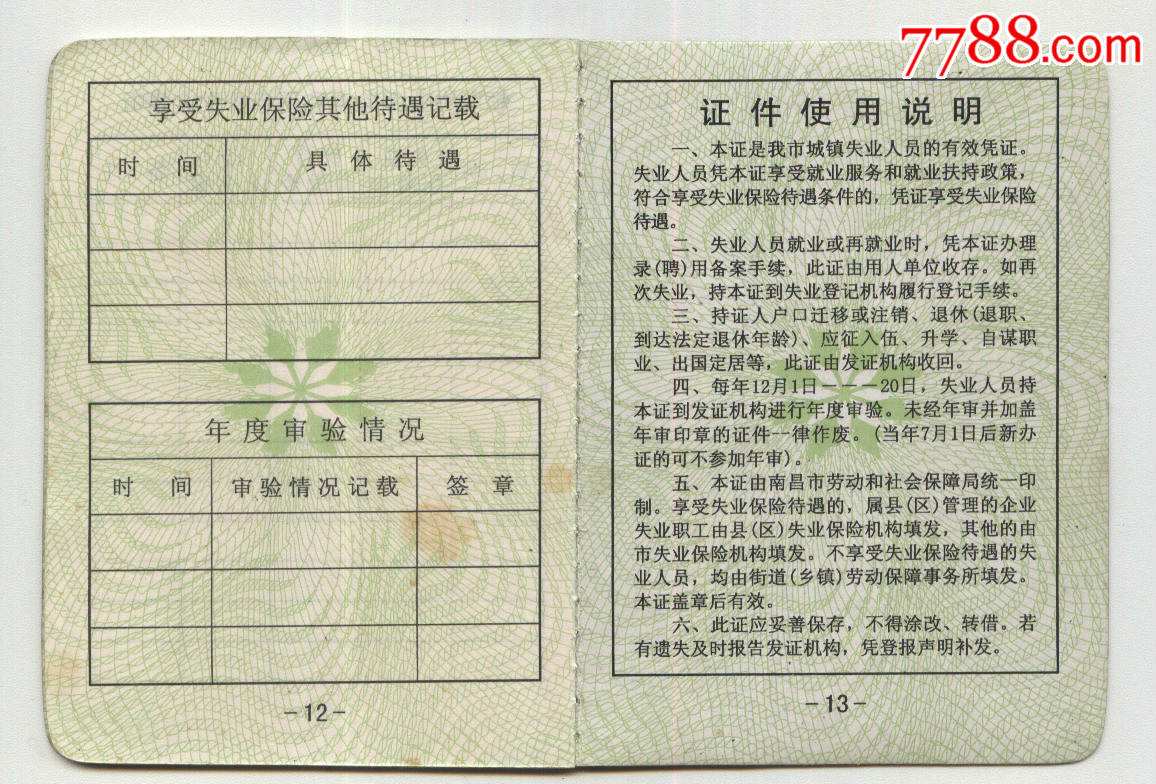 7788.com
享受失业保险其他待遇记载
时 间 具 体 待 遇
年 度 审 验 情 况
时 间 审验情况记载 签 章
-12-
证 件 使 用 说 明
一、本证是我市城镇失业人员的有效凭证。
失业人员凭本证享受就业服务和就业扶持政策，
符合享受失业保险待遇条件的，凭证享受失业保险
待遇。
二、失业人员就业或再就业时，凭本证办理
录(聘)用备案手续，此证由用人单位收存。如再
次失业，持本证到失业登记机构履行登记手续。
三、持证人户口迁移或注销、退休(退职、
到达法定退休年龄)、应征入伍、升学、自谋职
业、出国定居等，此证由发证机构收回。
四、每年12月1日———20日，失业人员持
本证到发证机构进行年度审验。未经年审并加盖
年审印章的证件一律作废。(当年7月1日后新办
证的可不参加年审)。
五、本证由南昌市劳动和社会保障局统一印
制。享受失业保险待遇的，属县(区)管理的企业
失业职工由县(区)失业保险机构填发，其他的由
市失业保险机构填发。不享受失业保险待遇的失
业人员，均由街道(乡镇)劳动保障事务所填发。
本证盖章后有效。
六、此证应妥善保存，不得涂改、转借。若
有遗失及时报告发证机构，凭登报声明补发。
-13-